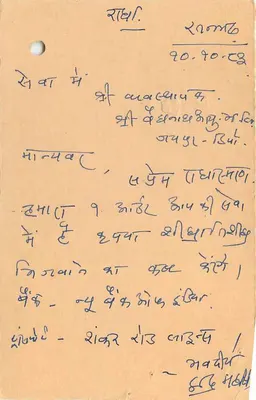 राधा
१०-१०-८३
सेवा में
श्री व्यवस्थापक
श्री वैद्यनाथ आयु. भवन
जयपुर - डिपो
मान्यवर,
सप्रेम राधास्मरण।
हमारा १ आर्डर आप की सेवा
में है कृपया शीघ्रातिशीघ्र
भिजवाने का कष्ट करेंगे।
बैंक - न्यू बैंक ऑफ इंडिया
ट्रांसपोर्ट - शंकर रोड लाइन्स।
- भवदीय